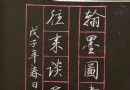 翰墨圖書
往来談
戊子年春日